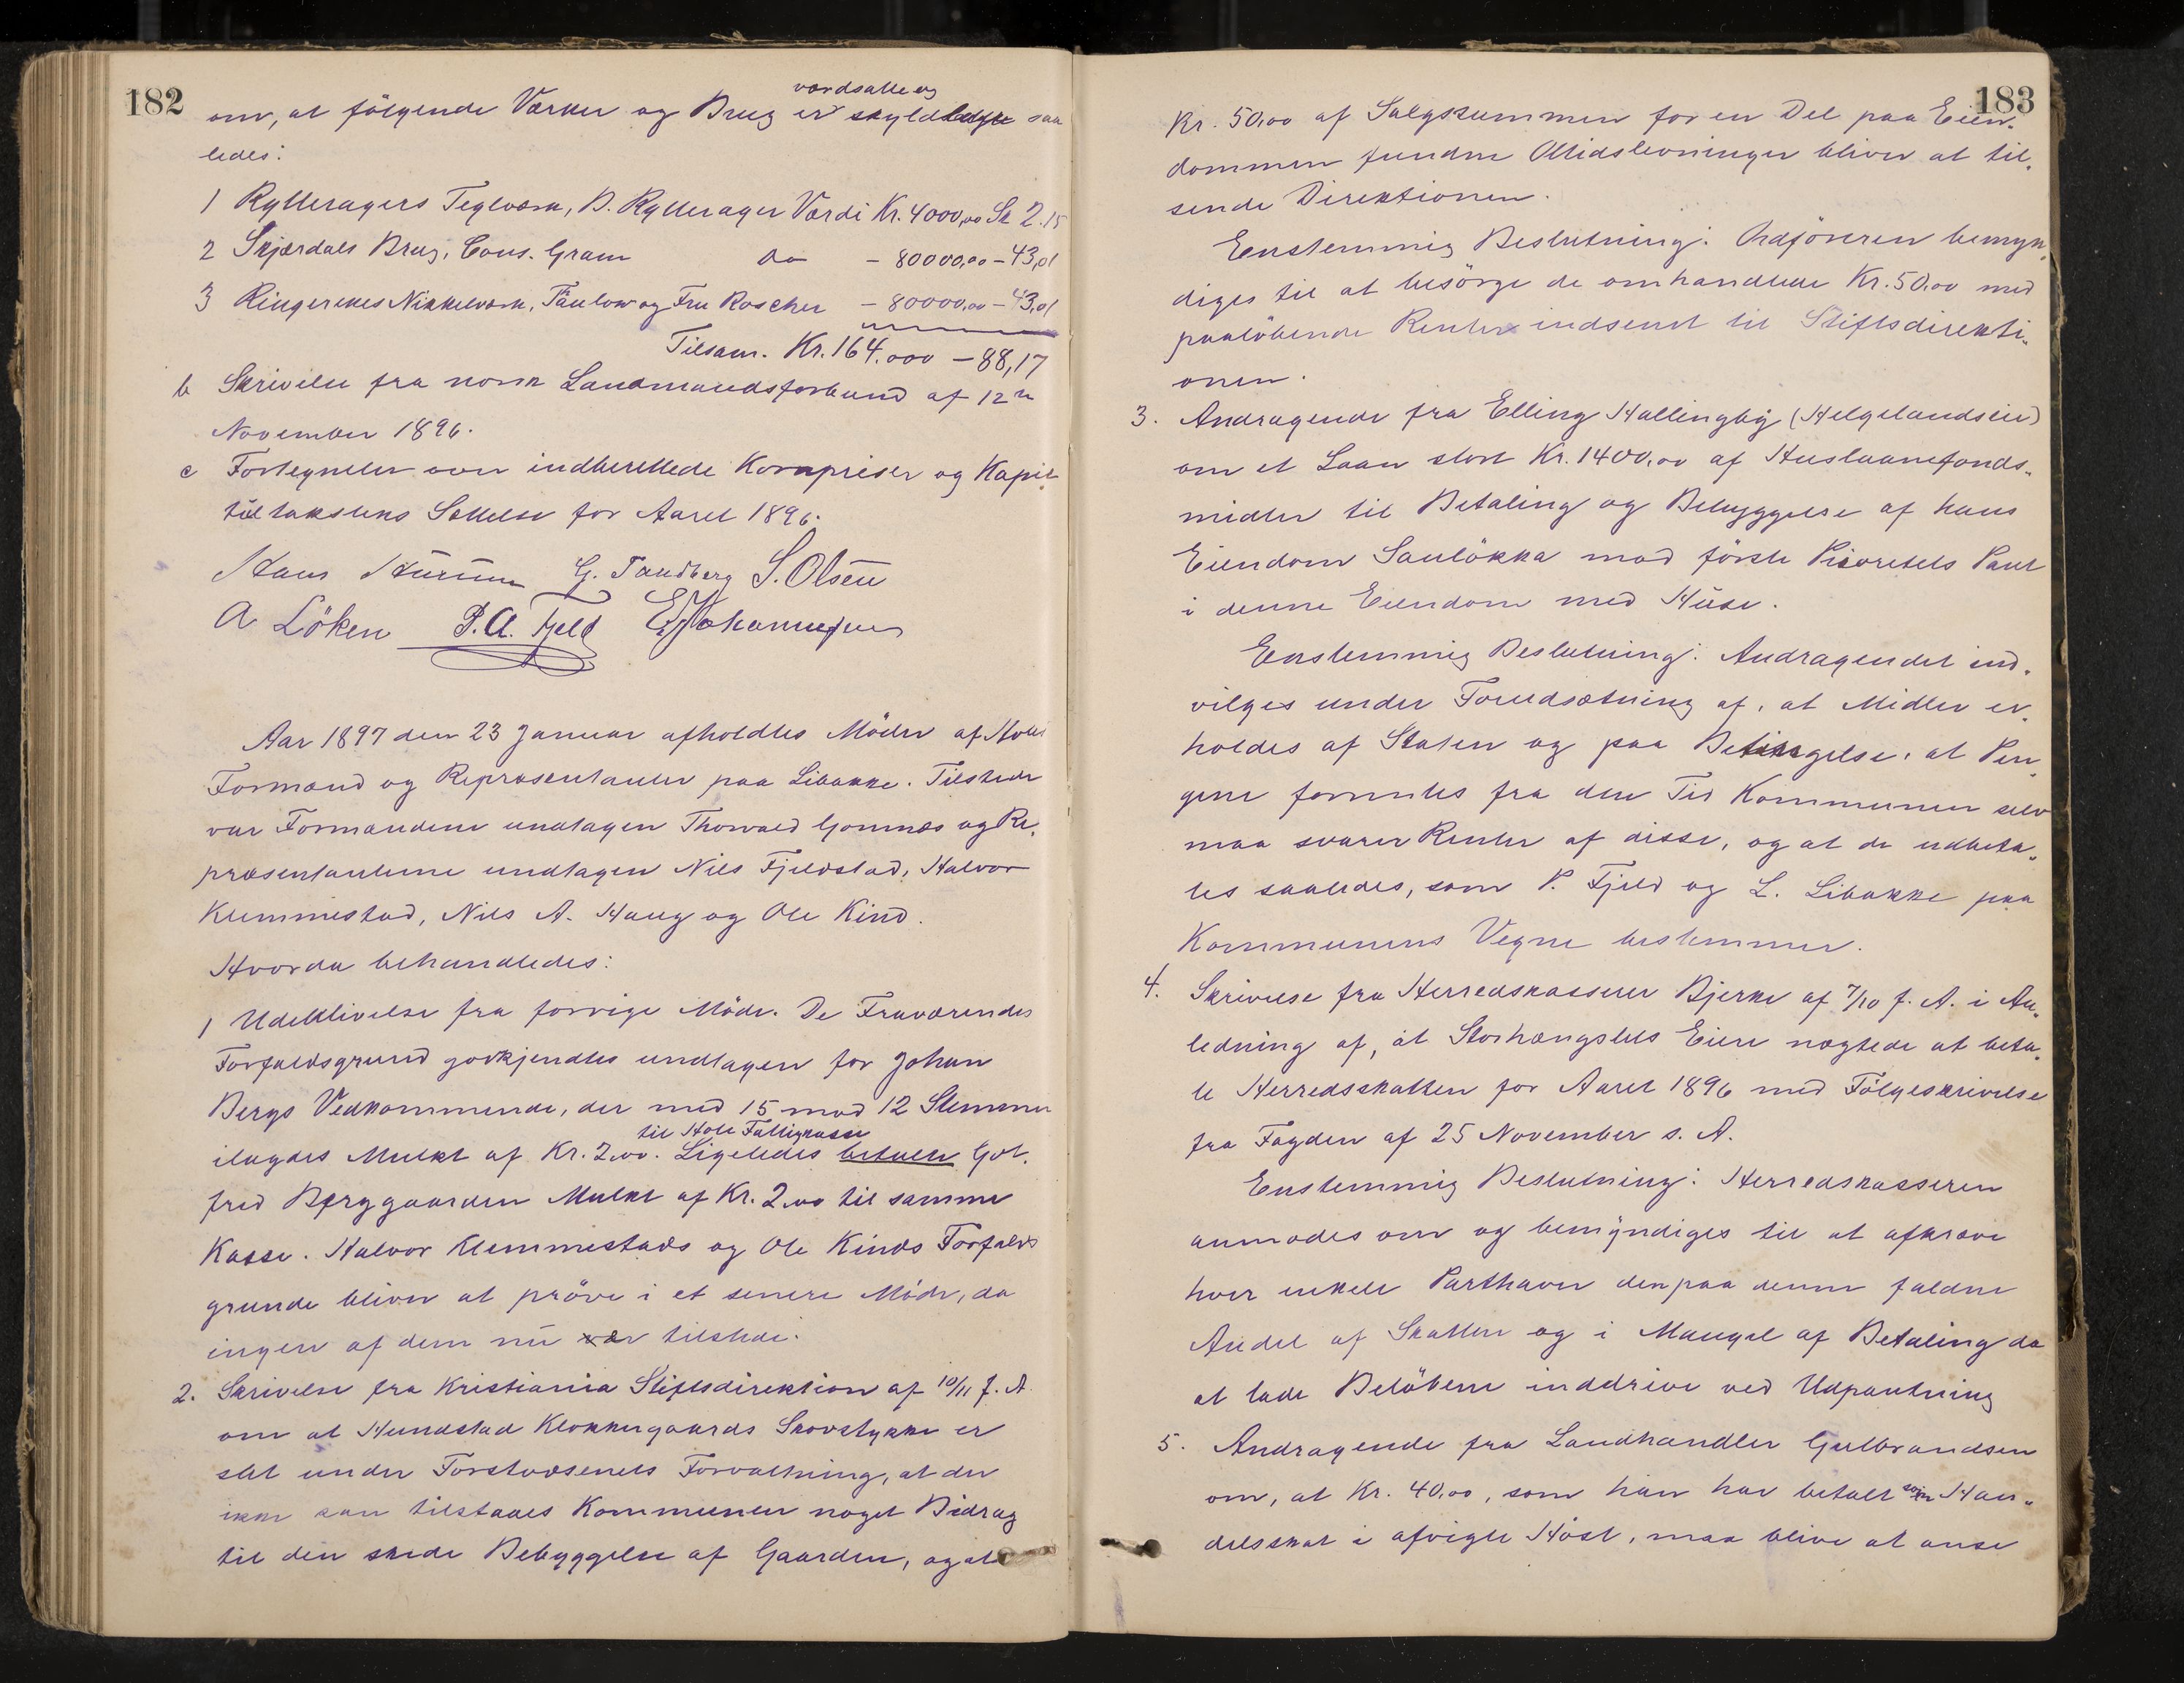 182
værdsatte og
om, at fölgende Værker og Brug er skyldlagte saa
ledes:
1 Rytteragers Teglværk, B. Rytterager Værdi Kr. 4000,00 Sk 2.15
2 Skjærdals Brug, Cons. Gram do - 80000,00 - 43,01
3 Ringerikes Nikkelværk, Paulow og Fru Roscher - 80000,00 - 43,01
Tilsam. Kr. 164.000 - 88,17
b Skrivelse fra norsk Landmandsforbund af 12te
November 1896.
c Fortegnelse over indberettede Kornpriser og Kapi-
teltakstens Sættelse for Aaret 1896.
Hans Hurum G. Tandberg S. Olsen
A Löken P. A. Fjeld E. Johannesen
Aar 1897 den 23 Januar afholdtes Möde af Hole
Formænd og Repræsentanter paa Libakke. Tilstede
var Formændene undtagen Thorvald Gomnæs og Re-
præsentanterne undtagen Nils Fjeldstad, Halvor
Klemmestad, Nils A. Haug og Ole Kind.
Hvorda behandledes:
1 Udeblivelse fra forrige Möde. De Fraværendes
Forfaldsgrund godkjendtes undtagen for Johan
Bergs Vedkommende, der med 15 mod 12 Stemmer
til Hole Fattigkasse
ilagdes Mulkt af Kr. 2,00. Ligeledes betaler Got-
fred Bjerggaarden Mulkt af Kr. 2,00 til samme
Kasse. Halvor Klemmestads og Ole Kinds Forfalds
grunde bliver at pröve i et senere Möde, da
ingen af dem nu var tilstede.
2. Skrivelse fra Kristiania Stiftsdirektion af 10/11 f. A.
om at Hundstad Klokkergaards Skovstykke er
slet under Forstvæsenets Forvaltning, at der
ikke kan tilstaaes Kommunen noget Bidrag
til den skede Bebyggelse af Gaarden, og at
183
Kr. 50,00 af Salgssummen for en Del paa Eien-
dommen fundne Oltidslevninger bliver at til-
sende Direktionen.
Enstemmig Beslutning: Ordföreren bemyn-
diges til at besörge de omhandlede Kr. 50,00 med
paalöbende Renter indsendt til Stiftsdirekti-
onen.
3. Andragende fra Elling Hallingby (Helgelandseie)
om et Laan stort Kr. 1400,00 af Huslaanefonds-
midler til Betaling og Bebyggelse af hans
Eiendom Saulökka mod förste Prioritets Pant
i denne Eiendom med Huse.
Enstemmig Beslutning: Andragendet ind-
vilges under Forudsætning af, at Midler er-
holdes af Staten og paa Betingelse, at Pen-
gene forrentes fra den Tid Kommunen selv
maa svarer Renter af disse, og at de udbeta-
les saaledes, som P. Fjeld og L. Libakke paa
Kommunens Vegne bestemmer.
4. Skrivelse fra Herredskasserer Bjerke af 7/10 f. A. i An-
ledning af, at Storhængslets Eiere nægtede at beta-
le Herredsskatten for Aaret 1896 med Fölgeskrivelse
fra Fogden af 25 November s. A.
Enstemmig Beslutning: Herredskasseren
anmodes om og bemyndiges til at afkræve
hver enkelt Parthaver den paa denne faldne
Andel af Skatten og i Mangel af Betaling da
at lade Belöbene inddrive ved Udpantning
5. Andragende fra Landhandler Gulbrandsen
om, at Kr. 40,00, som han har betalt som Han-
delsskat i afvigte Höst, maa blive at anse